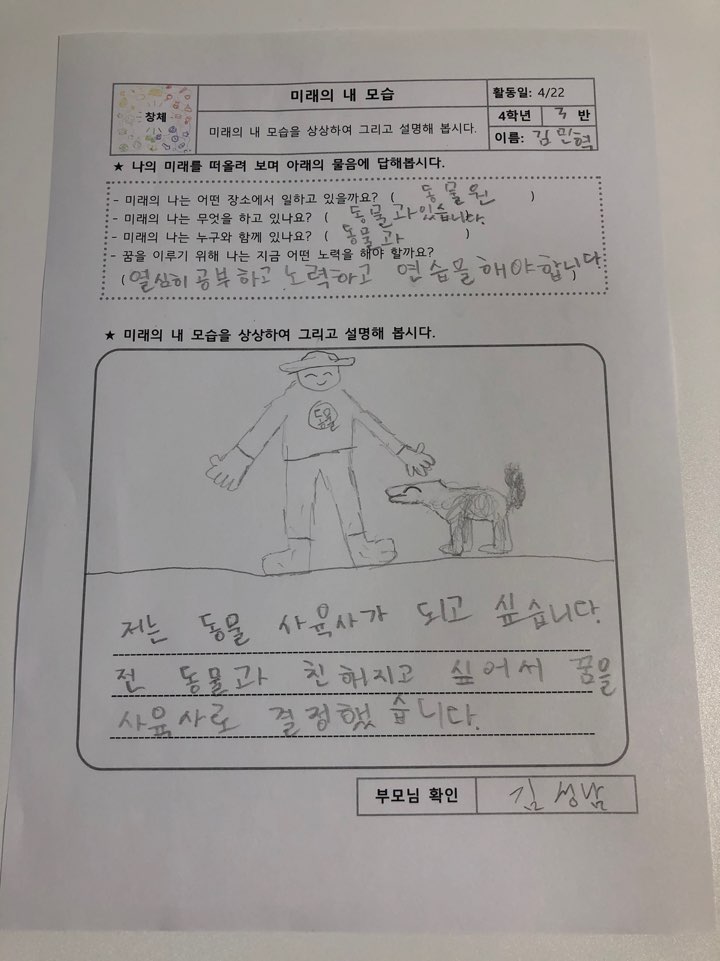 창체
미래의 내 모습
활동일: 4/22
미래의 내 모습을 상상하여 그리고 설명해 봅시다.
4학년 3 반
이름: 김민혁
★ 나의 미래를 떠올려 보며 아래의 물음에 답해봅시다.
- 미래의 나는 어떤 장소에서 일하고 있을까요? ( 동물원 )
- 미래의 나는 무엇을 하고 있나요? ( 동물과 있습니다.
- 미래의 나는 누구와 함께 있나요? ( 동물과 )
- 꿈을 이루기 위해 나는 지금 어떤 노력을 해야 할까요?
(열심히 공부하고 노력하고 연습을 해야합니다.)
★ 미래의 내 모습을 상상하여 그리고 설명해 봅시다.
동물
저는 동물 사육사가 되고 싶습니다.
전 동물과 친해지고 싶어서 꿈을
사육사로 결정했습니다.
부모님 확인 김성남